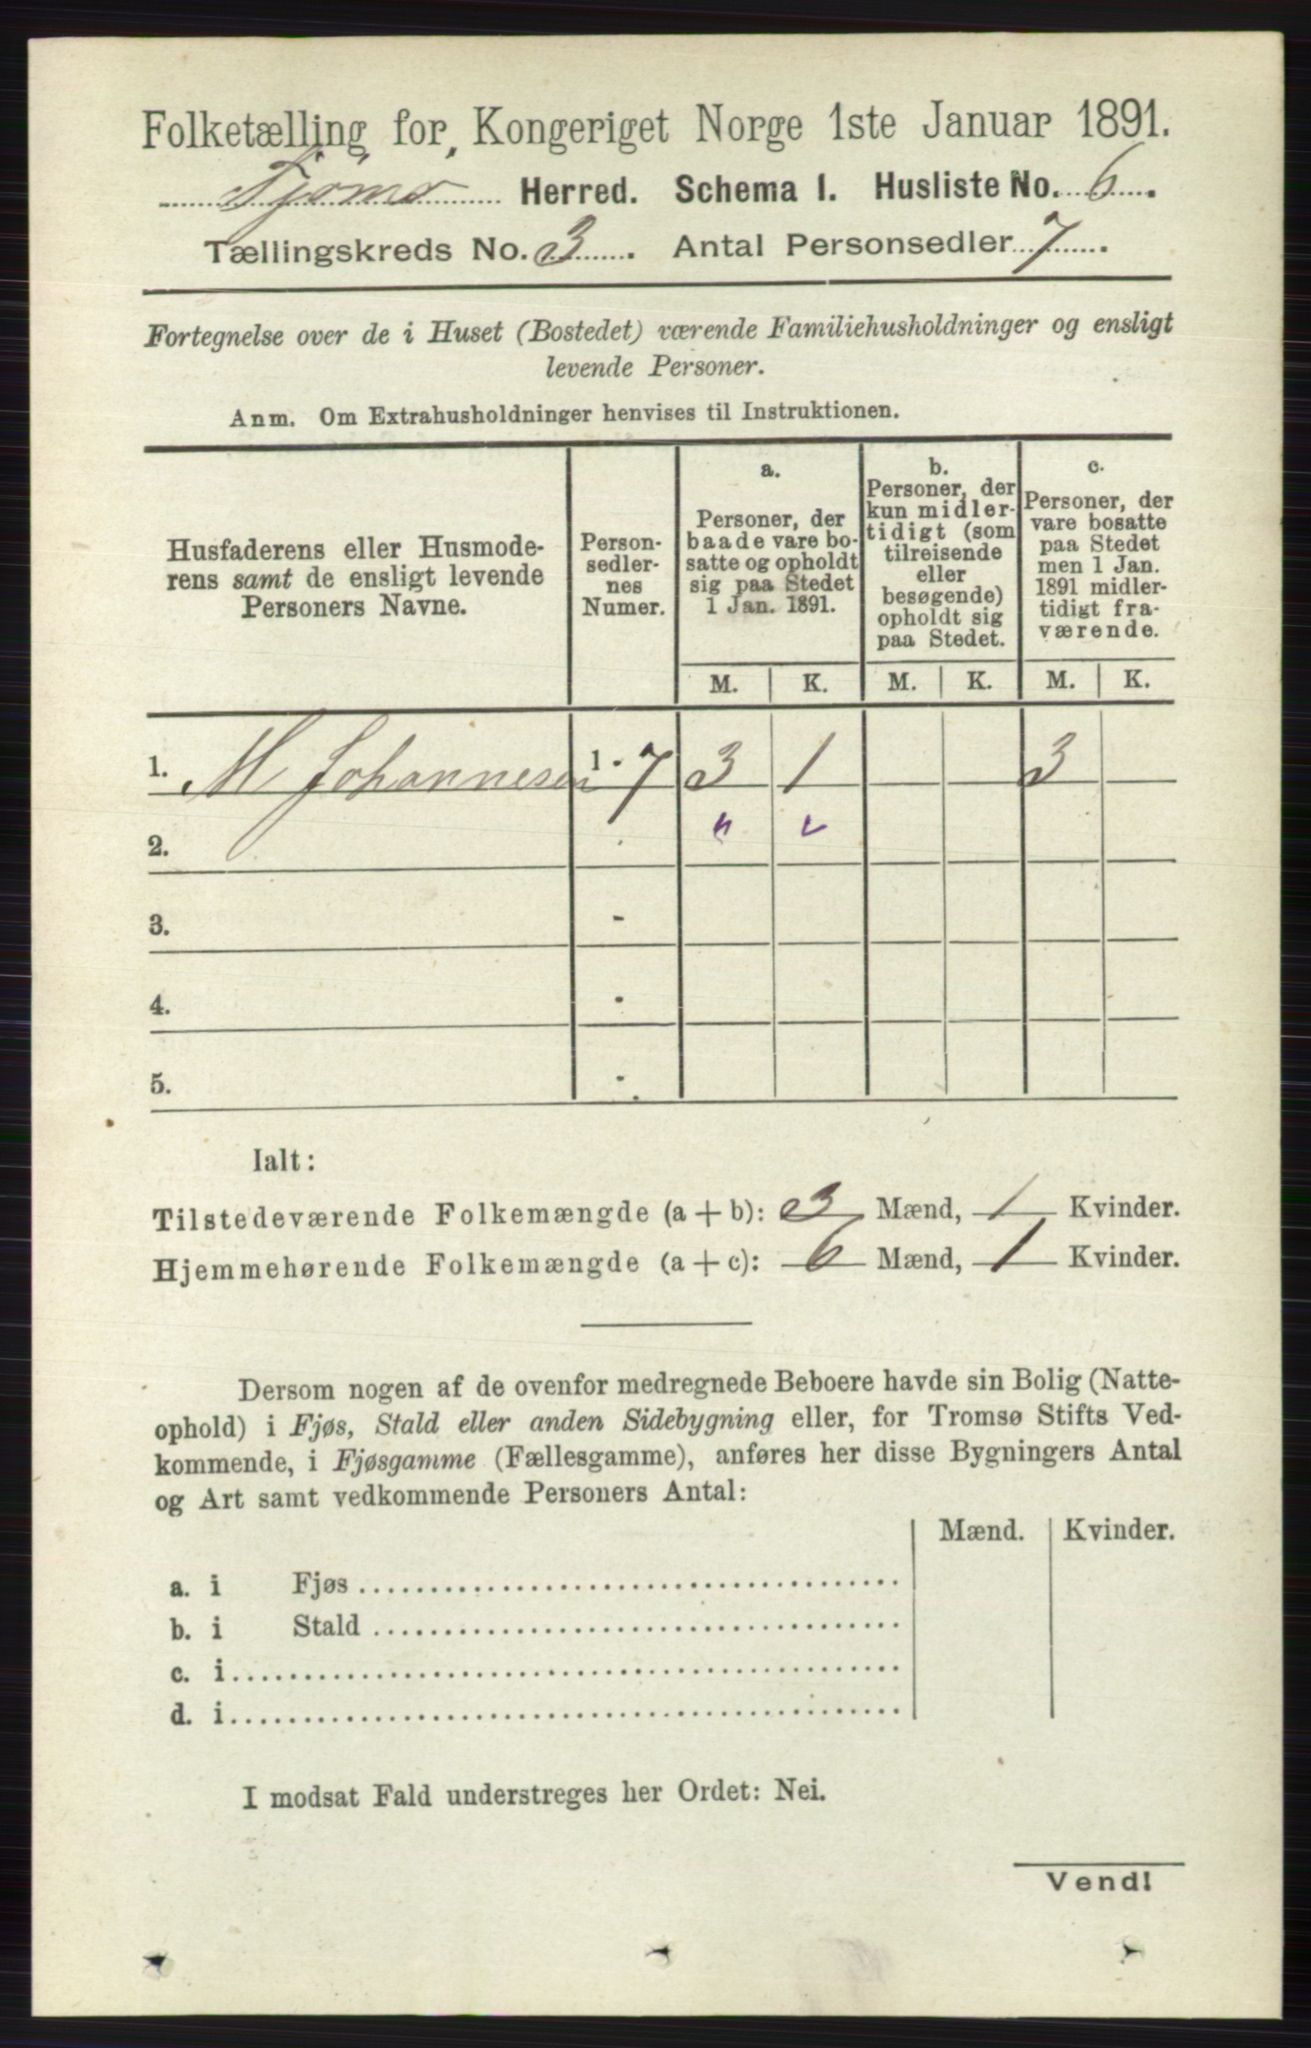 Folketælling for Kongeriget Norge 1ste Januar 1891.
Tjømø Herred. Schema 1. Husliste No. 6.
Tællingskreds No. 3. Antal Personsedler 7.
Fortegnelse over de i Huset (Bostedet) værende Familiehusholdninger og ensligt
levende Personer.
Anm. Om Extrahusholdninger henvises til Instruktionen.
Husfaderens eller Husmode-
rens samt de ensligt levende
Personers Navne.
Person-
sedler-
nes
Numer.
a.
Personer, der
baade vare bo-
satte og opholdt
sig paa Stedet
1 Jan. 1891.
b.
Personer, der
kun midler-
tidigt (som
tilreisende
eller
besøgende)
opholdt sig
paa Stedet.
c.
Personer, der
vare bosatte
paa Stedet
men 1 Jan.
1891 midler-
tidigt fra-
værende.
M. K. M. K. M. K.
1. M Johannesen 1 - 7 3 1 3
2.
3. -
4. -
5. -
Ialt:
Tilstedeværende Folkemængde (a + b): 3 Mænd, 1 Kvinder.
Hjemmehørende Folkemængde (a + c): 6 Mænd, 1 Kvinder.
Dersom nogen af de ovenfor medregnede Beboere havde sin Bolig (Natte-
ophold) i Fjøs, Stald eller anden Sidebygning eller, for Tromsø Stifts Ved-
kommende, i Fjøsgamme (Fællesgamme), anføres her disse Bygningers Antal
og Art samt vedkommende Personers Antal:
Mænd. Kvinder.
a. i Fjøs
b. i Stald
c. i
d. i
I modsat Fald understreges her Ordet: Nei.
Vend!